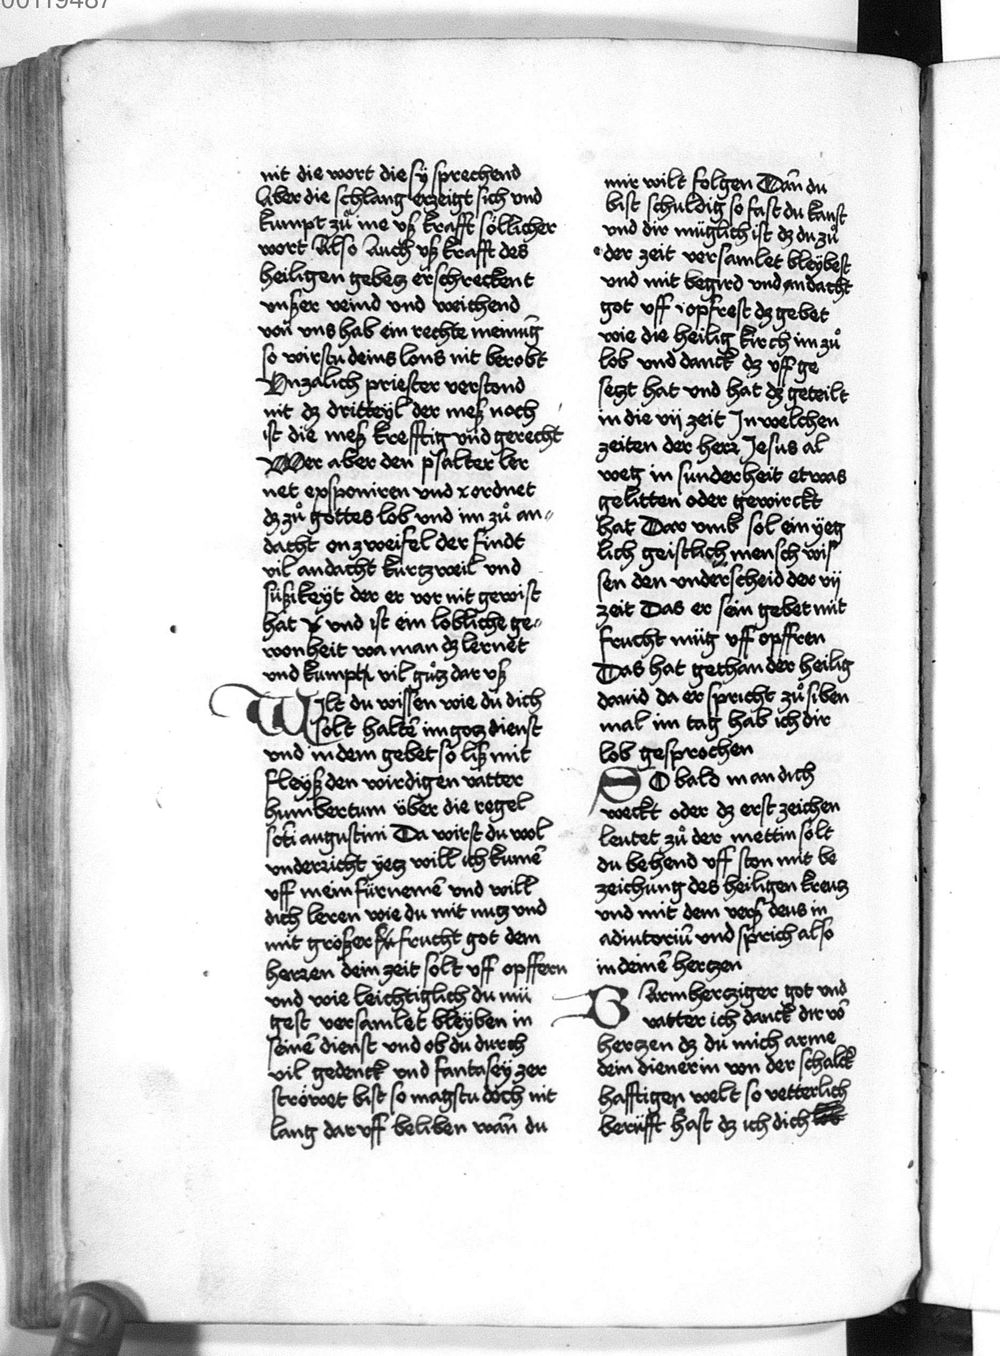 00119487
nit die wort die sÿ sprechend
Aber die schlang erzeigt sich vnd
kumpt zuͦ me vß krafft söllicher
wort Also Auch vß krafft des
heiligen gebetz erschreckent
vnßer veind vnd weichend
von vns hab ein rechte meinūg
so wirstu deins lons nit berobt
Vnzalich priester verstond
nit dz dritteÿl der meß noch
ist die meß krefftig vnd gerecht
Wer aber den psalter ler
net exponiren vnd ordnet
dz zuͦ gottes lob vnd im zuͦ an〃
dacht on zweifel der findt
vil andacht kurtzweil vnd
süßikeÿt der er vor nit gewist
hat vnd ist ein lobliche ge〃
wonheit wa man dz lernet
vnd kumpt vil guͦtz dar vß
Wilt du wissen wie du dich
solt haltē im gotz dienst
vnd in dem gebet so liß mit
fleÿß den wirdigen vatter
humbertum über die regel
scti augustini Da wirst du wol
vnderricht ÿetz will ich kumē
vff mein fürnemē vnd will
dich leren wie du mit nutz vnd
mit großer frucht got dem
herren dein zeit solt vff opffern
vnd wie leichtiglich du mü
gest versamlet bleÿben in
seinē dienst vnd ob du durch
vil gedenck vnd fantaseÿ zer
ströwet bist so magstu doch nit
lang dar vff beliben wān du
mir wilt folgen Dān du
bist schuldig so fast du kanst
vnd dir müglich ist dz du zuͦ
der zeit versamlet bleÿbest
vnd mit begird vnd andacht
got vff opfrest dz gebet
wie die heilig kirch im zuͦ
lob vnd danck dz vff ge
setzt hat vnd hat dz geteilt
in die vij zeit In welchen
zeiten der herr Jesus al
weg in sunderheit etwas
gelitten oder gewirckt
hat Dar vmb sol ein ÿeg
lich geistlich mensch wis
sen den vnderscheid der vij
zeit Das er sein gebet mit
frucht müg vff opffren
Das hat gethan der heilig
dauid da er spricht zuͦ siben
mal im tag hab ich dir
lob gesprochen
SO bald man dich
weckt oder dz erst zeichen
leutet zuͦ der mettin solt
du behend vff ston mit be
zeichung des heiligen kreutz
vnd mit dem verß deus in
adiutoriū vnd sprich also
in deinē hertzen
Barmhertziger got vnd
vatter ich danck dir vō
hertzen dz du mich arme
dein dienerin von der schalck
hafftigen welt so vetterlich
berüfft hast dz ich dich